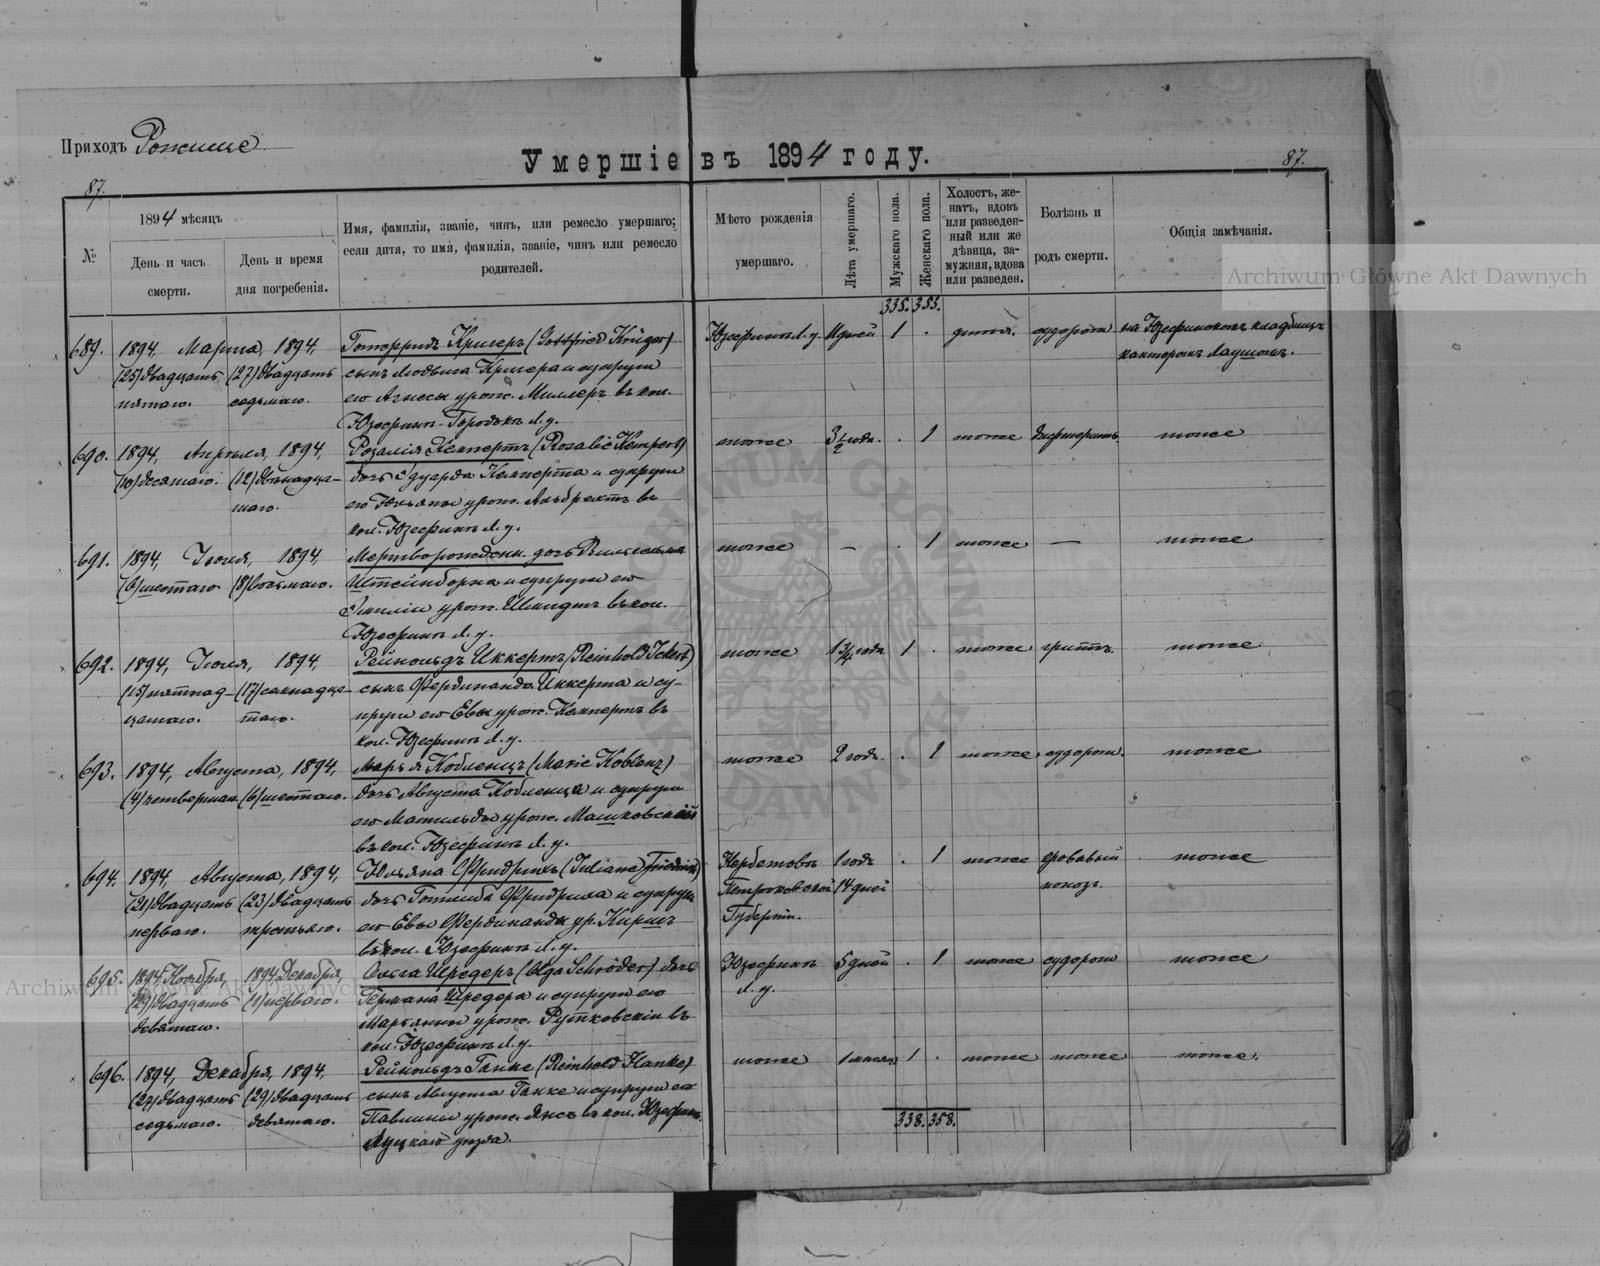 Приходъ Рожище
Умершіе въ 1894 году.
87.
87.
№
1894 мѣсяцъ
День и часъ смерти.
День и время дня погребенія.
Имя, фамилія, званіе, чинъ, или ремесло умершаго;
если дитя, то имя, фамилія, званіе, чинъ или ремесло
родителей.
Мѣсто рожденія
умершаго.
Лѣта умершаго.
Мужскаго пола.
Женскаго пола.
Холостъ, же-
натъ, вдовъ
или разведен-
ный или же
дѣвица, за-
мужняя, вдова
или разведен.
Болѣзнь и
родъ смерти.
Общія замѣчанія.
335. 355.
689. 1894, Марта, 1894, Готфридъ Кригеръ (Gottfried Krüger) Юзефинъ Л. у. 11 дней 1 . дитя. судороги на Юзефинскомъ кладбищѣ
(25) двадцать (27) двадцать сынъ Людвига Кригера и супруги
пятаго. седьмаго. его Агнесы урож. Миллеръ въ кол.
Юзефинъ-Городокъ Л. у.
690. 1894, Апрѣля, 1894, Розалія Кемпертъ (Rosalie Kempert) тоже 3 1/2 года. . 1 тоже дифтеритъ тоже
(10) десятаго. (12) двѣнадца- дочь Эдуарда Кемперта и супруги
таго. его Юльяны урож. Альбрехтъ въ
кол. Юзефинъ Л. у.
691. 1894, Іюля, 1894, Мертворожденн. дочь тоже — . 1 тоже — тоже
(6) шестаго (8) восьмаго. Штейнборна и супруги его
Эмиліи урож. Шмидтъ въ кол.
Юзефинъ Л. у.
692. 1894, Іюля, 1894 Рейнольдъ Иккертъ (Reinhold Ickert) тоже 1 3/4 года 1 . тоже гриппъ тоже
(15) пятнад- (17) семнадца- сынъ Фердинанда Иккерта и су-
цатаго. таго. пруги его Евы урож. Кемпертъ въ
кол. Юзефинъ Л. у.
693. 1894, Августа, 1894, Марья Кобленцъ (Marie Koblenz) тоже 2 года. . 1 тоже судороги. тоже
(4) четвертаго (6) шестаго. дочь Августа Кобленца и супруги
его Матильды урож. Машковскій
въ кол. Юзефинъ Л. у.
694. 1894, Августа, 1894, Юльяна Фридрихъ (Juliane Friedrich) 1 годъ . 1 тоже кровавый тоже
(21) двадцать (23) двадцать дочь Готлиба Фридриха и супруги Петроковской 14 дней поносъ.
перваго. третьяго. его Евы Фердинанды ур. Киршъ Губерніи.
въ кол. Юзефинъ Л. у.
695. 1894 Ноября, 1894 Декабря, Ольга Шредеръ (Olga Schröder) дочь Юзефинъ 5 дней . 1 тоже судороги тоже
(29) двадцать (1) перваго. Германа Шредера и супруги его Л. у.
девятаго. Марьянны урож. Рутковскіи въ
кол. Юзефинъ Л. у.
696. 1894, Декабря, 1894 Рейнольдъ Ганке (Reinhold Hanke) тоже 1 мѣсяцъ 1 . тоже тоже тоже.
(27) двадцать (29) двадцать сынъ Августа Ганке и супруги его
седьмаго. девятаго. Павлины урож. Янсъ въ кол. Юзефинъ
Луцкаго уѣзда.
338. 358.
Archiwum Główne Akt Dawnych
Archiwum Główne Akt Dawnych
ARCHIWUM GŁÓWNE AKT DAWNYCH